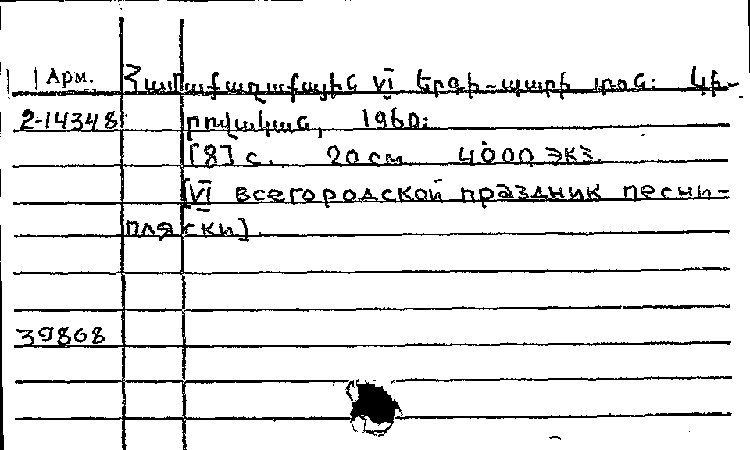 Арм. Համաքաղաքային VI երգի-պարի տոն։ Կի-
2-14348 րովական, 1960։
[8] с. 20 см 4000 экз.
[VI всегородской праздник песни-
пляски].
39868